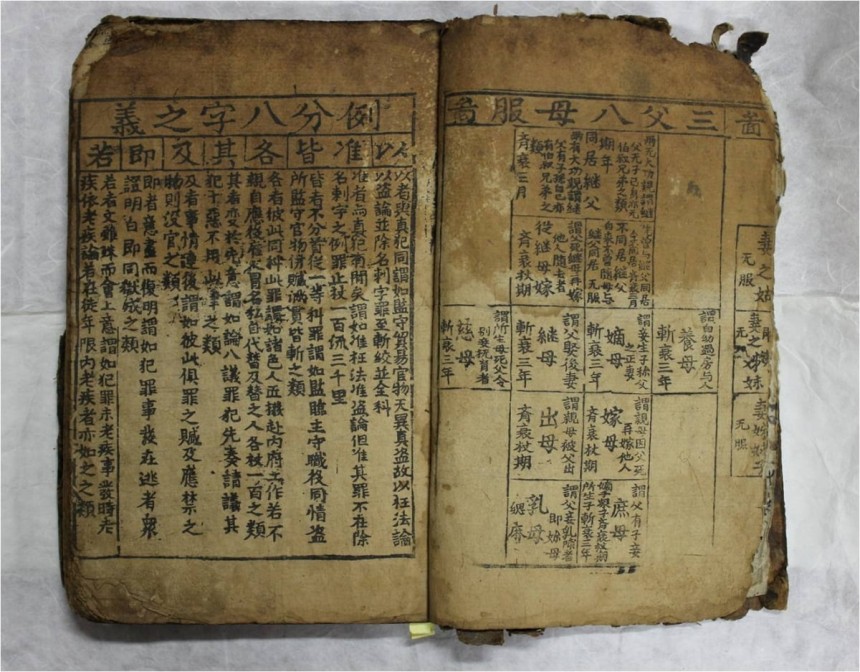 啚
妻之姑
无服
无服
无服
三父八母服啚
同居繼父
期年
齊衰三月
不同居繼父
无服
謂父死繼母再嫁
他人隨去者
從繼母嫁
齊衰杖期
謂自幼過房与人
養母
斬衰三年
謂妾生子称父
之正妻
嫡母
斬衰三年
謂父娶後妻
繼母
斬衰三年
謂所生母死父令
別妾撫育者
慈母
斬衰三年
謂親母因父死
再嫁他人
嫁母
齊衰杖期
謂親母被父出
出母
齊衰杖期
謂父有子妾
庶母
嫡子衆子齊衰杖期
所生子斬衰三年
謂父妾乳哺者
即奶母
乳母
緦麻
例分八字之義
以
准
皆
各
其
及
即
若
以者與真犯同謂如監守貿易官物无異真盗故以枉法論
以盗論並除名刺字罪至斬絞並全科
准者与真犯有間矣謂如准枉法准盗論但准其罪不在除
名刺字之例罪止杖一百流三千里
皆者不分首從一等科罪謂如監臨主守職役同情盗
所監守官物併贓滿貫皆斬之類
各者彼此同科此罪謂如諸色人匠撥赴内府工作若不
親自應役雇人冒名私自代替及替之人各杖一百之類
其者变於先意謂如論八議罪犯先奏請議其
犯十惡不用此律之類
及者事情連後謂如彼此俱罪之贓及應禁之
物則沒官之類
即者意盡而復明謂如犯罪事發在逃者衆
證明白即同獄成之類
若者文雖殊而會上意謂如犯罪未老疾事發時老
疾依老疾論若在徒年限内老疾者亦如之之類